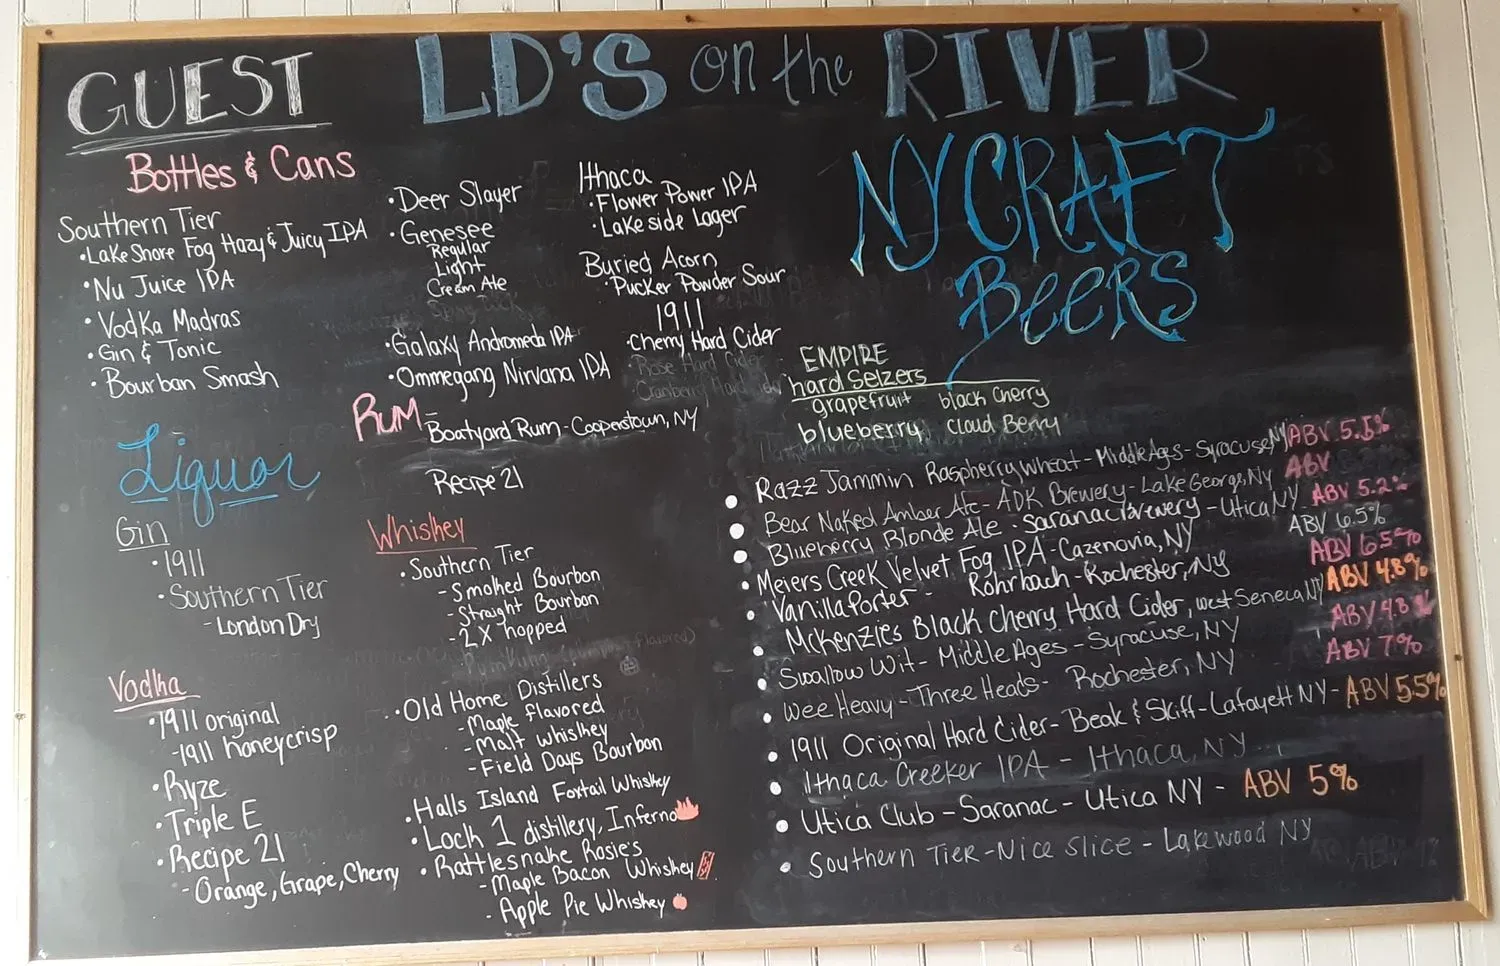 GUEST
LD'S on the RIVER
Bottles & Cans
Southern Tier
• Lake Shore Fog Hazy & Juicy IPA
• Nu Juice IPA
• Vodka Madras
• Gin & Tonic
• Bourban Smash
• Deer Slayer
• Genesee
Regular
Light
Cream Ale
• Galaxy Andromeda IPA
• Ommegang Nirvana IPA
Ithaca
• Flower Power IPA
• Lakeside Lager
Buried Acorn
• Pucker Powder Sour
1911
• Cherry Hard Cider
Rose Hard Cider
Cranberry Hard Cider
RUM -
Boatyard Rum - Cooperstown, NY
Recipe 21
Liquor
Gin
• 1911
• Southern Tier
- London Dry
Vodka
• 1911 original
- 1911 honeycrisp
• Ryze
• Triple E
• Recipe 21
- Orange, Grape, Cherry
Whiskey
• Southern Tier
- Smoked Bourbon
- Straight Bourbon
- 2 X hopped
• Old Home Distillers
- Maple flavored
- Malt whiskey
- Field Days Bourbon
• Halls Island Foxtail Whiskey
• Lock 1 distillery, Inferno
• Rattlesnake Rosie's
- Maple Bacon Whiskey
- Apple Pie Whiskey
NY CRAFT
BEERS
EMPIRE
hard Selzers
grapefruit black cherry
blueberry cloud Berry
• Razz Jammin Raspberry wheat - Middle Ages - Syracuse, NY ABV 5.5%
• Bear Naked Amber Ale - ADK Brewery - Lake George, NY ABV
• Blueberry Blonde Ale - Saranac Brewery - Utica NY ABV 5.2%
• Meiers Creek Velvet Fog IPA - Cazenovia, NY ABV 6.5%
• Vanilla Porter - Rohrbach - Rochester, NY ABV 6.5%
• McKenzies Black Cherry Hard Cider, West Seneca NY ABV 4.8%
• Swallow Wit - Middle Ages - Syracuse, NY ABV 4.8%
• Wee Heavy - Three Heads - Rochester, NY ABV 7%
• 1911 Original Hard Cider - Beak & Skiff - Lafayett NY - ABV 5.5%
• Ithaca Creeker IPA - Ithaca, NY
• Utica Club - Saranac - Utica NY - ABV 5%
• Southern Tier - Nice Slice - Lakewood NY